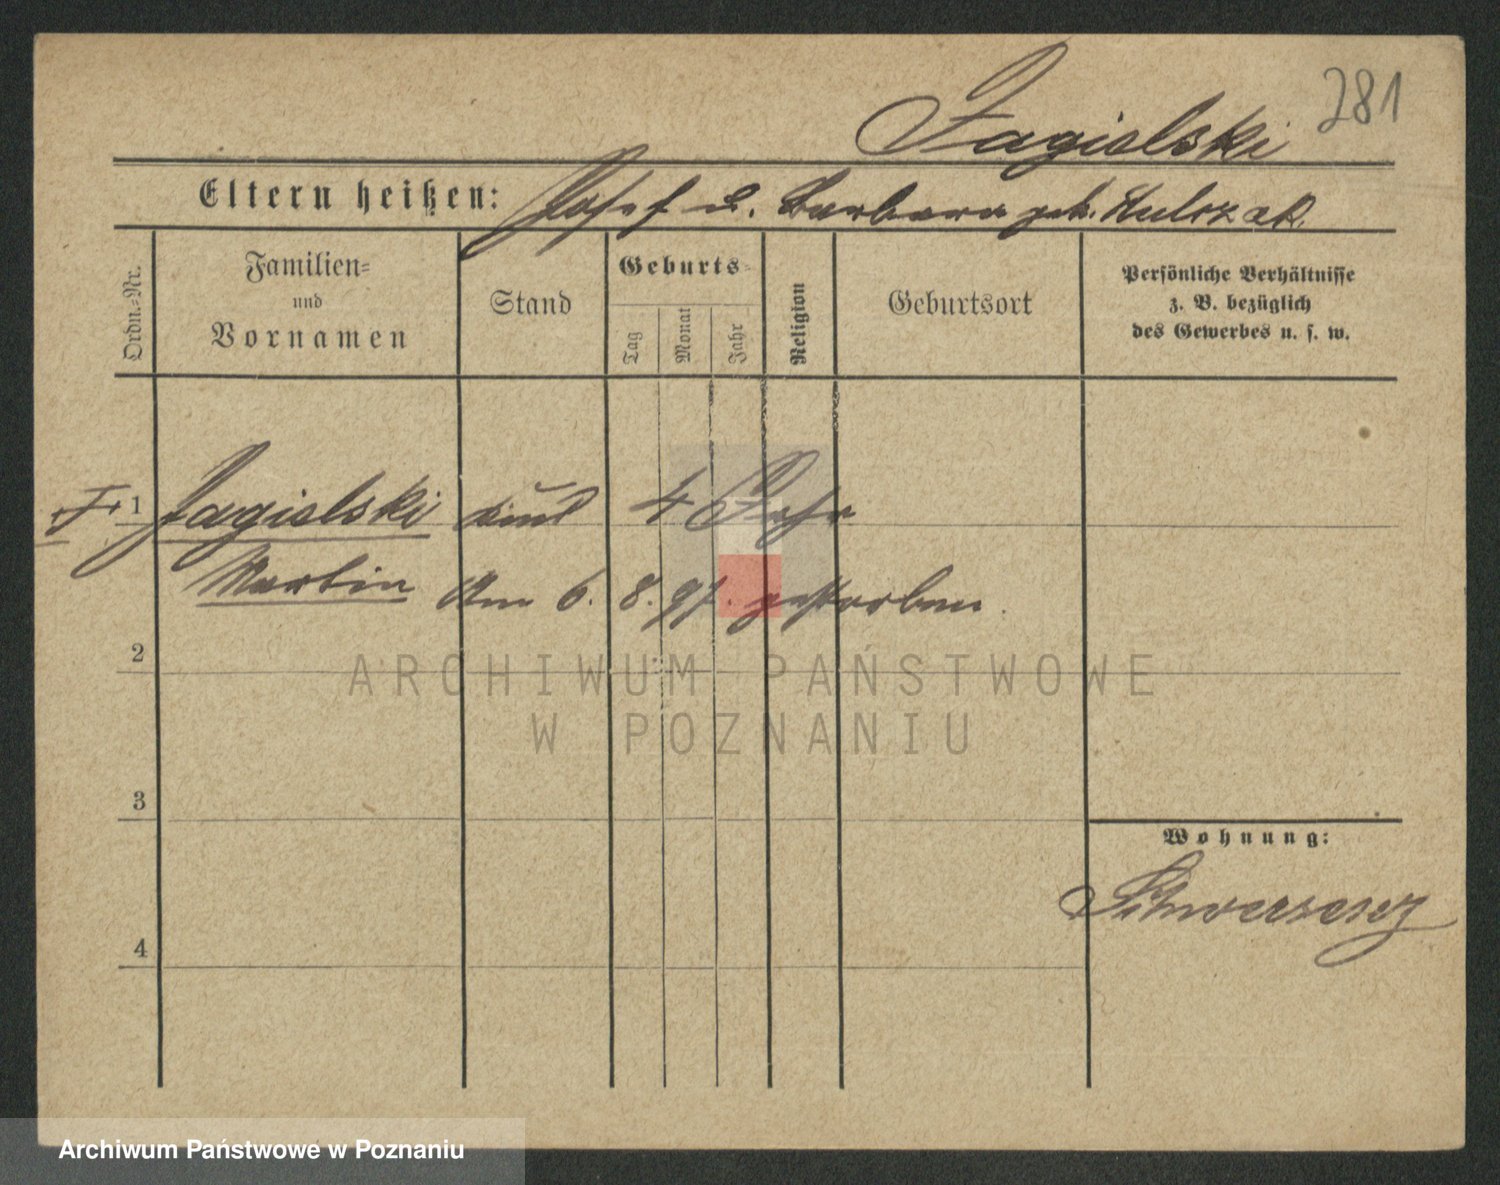 281
Jagielski
Eltern heißen: Josef u. Barbara geb.
Ordn.-Nr.
Familien-
und
Vornamen
Stand
Geburts-
Tag
Monat
Jahr
Religion
Geburtsort
Persönliche Verhältnisse
z. B. bezüglich
des Gewerbes u. s. w.
1 Jagielski Kind 4 Jahr
Martin Am 6. 8. 97. gestorben.
2
ARCHIWUM PAŃSTWOWE
W POZNANIU
3
Wohnung:
Schwersenz
4
Archiwum Państwowe w Poznaniu